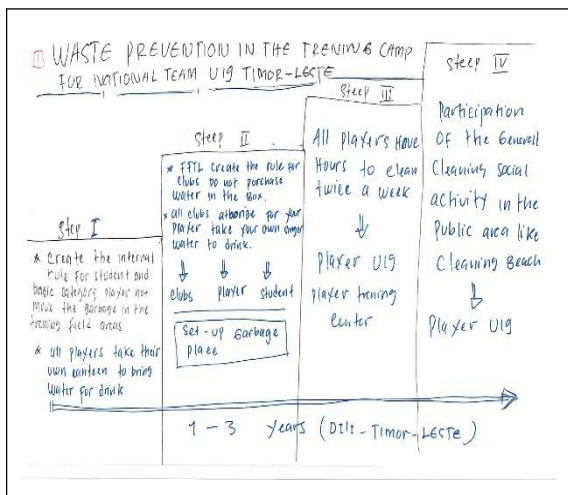 ① WASTE PREVENTION IN THE TRENING CAMP
FOR NATIONAL TEAM U19 TIMOR-LESTE
Step I
* Create the internal
rule for student and
basic category player not
move the garbage in the
trening field areas
* all players take their
own canteen to bring
water for drink
Steep II
* FFTL create the rule for
clubs Do not purchase
water in the Box.
* all clubs for your
player take your own
water to drink.
clubs player student
Set-up Garbage
place
Steep III
All players Have
Hours to clean
twice a week
Player U19
player trening
Center
Steep IV
Participation
Of the Generall
Cleaning social
activity in the
Public area like
Cleaning Beach
Player U19
1 - 3 years (DILI-TIMOR-LESTE)